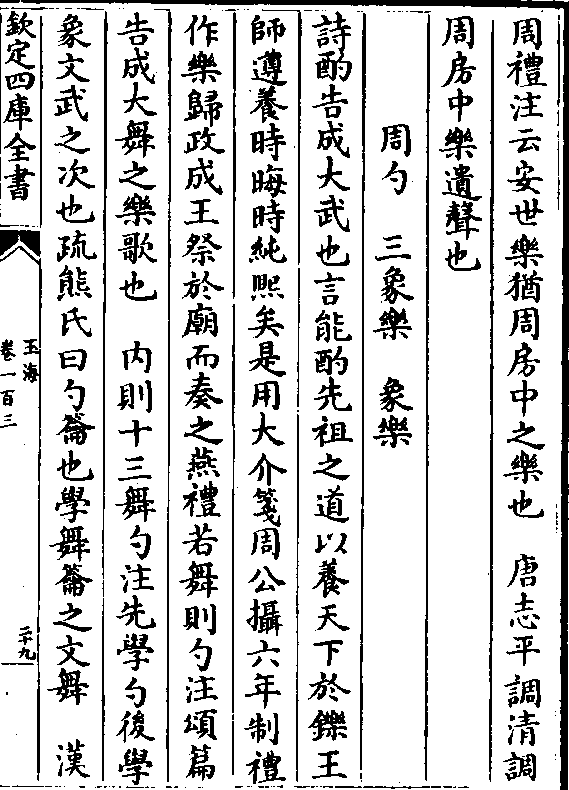 周禮注云安世樂猶周房中之樂也　唐志平調清調
周房中樂遺聲也
周勺　三象樂　象樂
詩酌告成大武也言能酌先祖之道以養天下於鑠王
師遵養時晦時純熙矣是用大介箋周公攝六年制禮
作樂歸政成王祭於廟而奏之燕禮若舞則勺注頌篇
告成大舞之樂歌也　内則十三舞勺注先學勺後學
象文武之次也疏熊氏曰勺籥也學舞籥之文舞　漢
欽定四庫全書
玉海
卷一百三
二十九